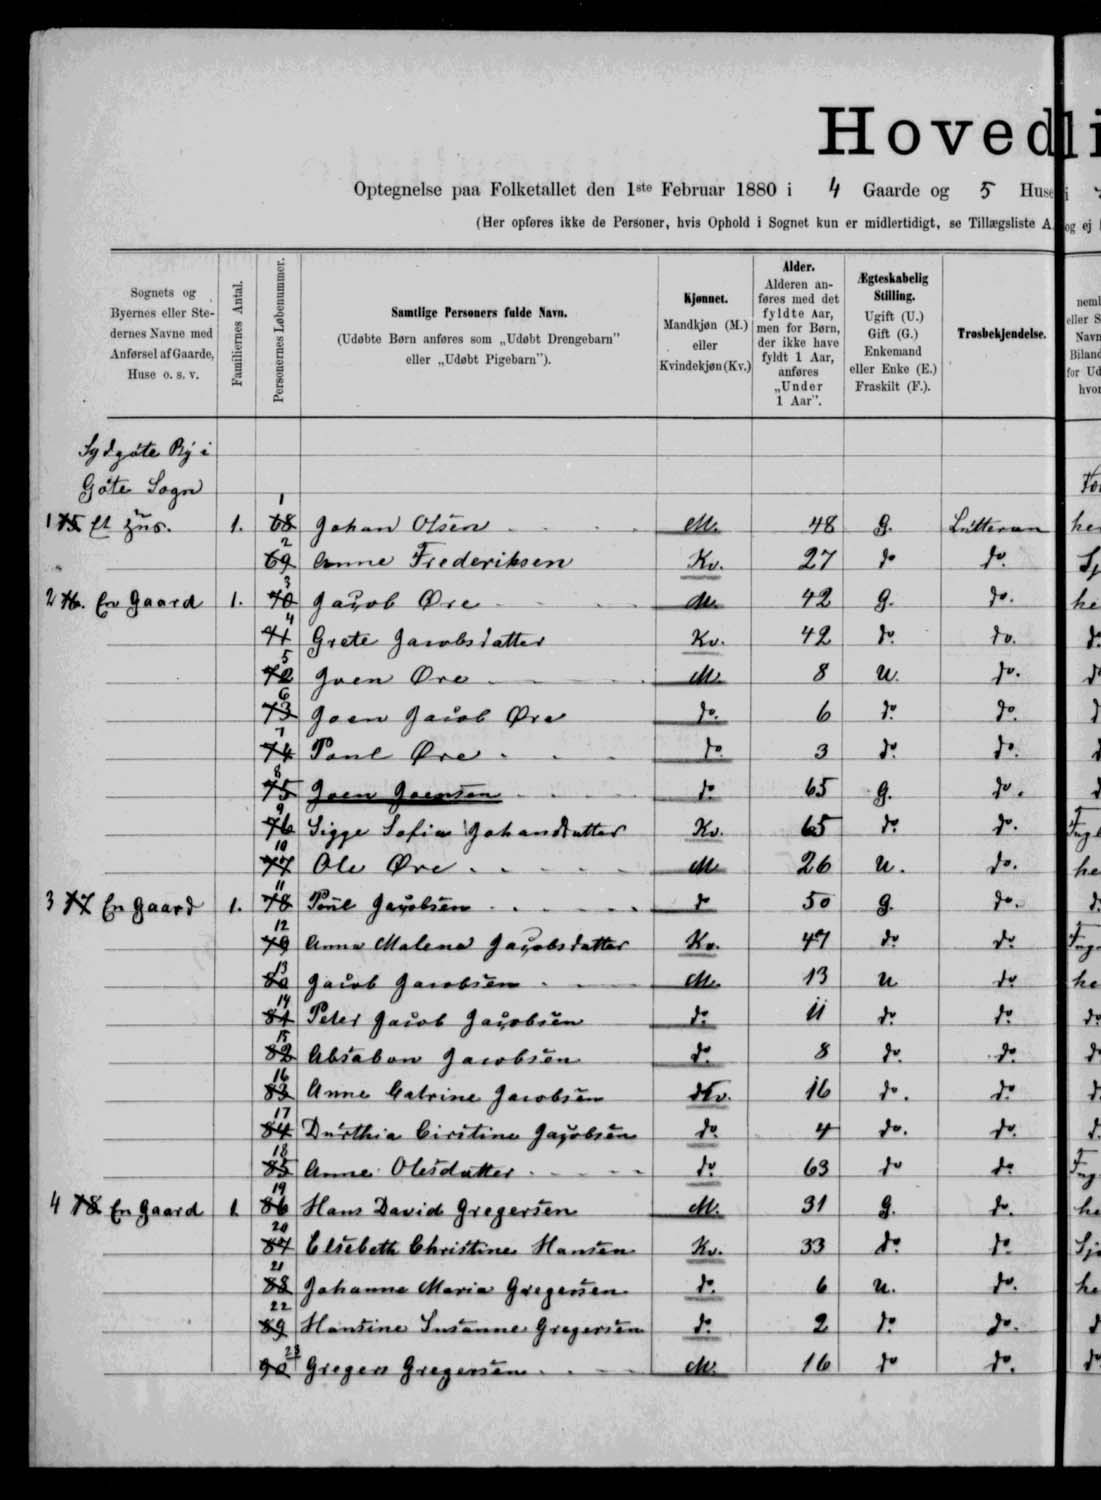 Hovedli
Optegnelse paa Folketallet den 1ste Februar 1880 i 4 Gaarde og 5 Huse i
(Her opføres ikke de Personer, hvis Ophold i Sognet kun er midlertidigt, se Tillægsliste A, og ej
Sognets og Byernes eller Stedernes Navne med Anførsel af Gaarde, Huse o. s. v.
Familiernes Antal.
Personernes Løbenummer.
Samtlige Personers fulde Navn.
(Udøbte Børn anføres som „Udøbt Drengebarn"
eller „Udøbt Pigebarn").
Kjønnet.
Mandkjøn (M.)
eller
Kvindekjøn (Kv.)
Alder.
Alderen anføres med det fyldte Aar, men for Børn, der ikke have fyldt 1 Aar, anføres „Under 1 Aar".
Ægteskabelig Stilling.
Ugift (U.)
Gift (G.)
Enkemand eller Enke (E.)
Fraskilt (F.).
Trosbekjendelse.
Sydgøte By i
Gøte Sogn
1 75 Et Hus. 1. 68 1 Johan Olsen M. 48 G. Lutteran he
69 2 Anne Frederiksen Kv. 27 do do. Sj
2 76. En Gaard 1. 70 3 Jacob Øre M. 42 G. do. he
71 4 Grete Jacobsdatter Kv. 42 do. do. d.
72 5 Joen Øre M. 8 U. do. do
73 6 Joen Jacob Øre do. 6 do. do. d
74 7 Poul Øre do. 3 do. do. d
75 8 Joen Joensen do 65 G. do. d
76 9 Sigge Sofia Johansdatter Kv. 65 do. do. Fugl
77 10 Ole Øre M 26 U. do. he
3 77 En Gaard 1. 78 11 Poul Jacobsen do 50 G. do. d.
79 12 Anna Malena Jacobsdatter Kv. 47 do. do. Fug
80 13 Jacob Jacobsen M. 13 U do. he
81 14 Peter Jacob Jacobsen do. 11 do. do. do
82 15 Absabon Jacobsen do. 8 do. do. d
83 16 Anne Catrine Jacobsen Kv. 16 do. do. d.
84 17 Durthia Cirstine Jacobsen do. 4 do. do. d.
85 18 Anne Olesdatter do. 63 do do. Fug
4 78 En Gaard 1. 86 19 Hans David Gregersen M. 31 G. do. he
87 20 Elsebeth Christine Hansen Kv. 33 do. do. Sj
88 21 Johanne Maria Gregersen do. 6 U. do. he
89 22 Hansine Susanne Gregersen do. 2 do. do. d
90 23 Gregers Gregersen M. 16 do do. do